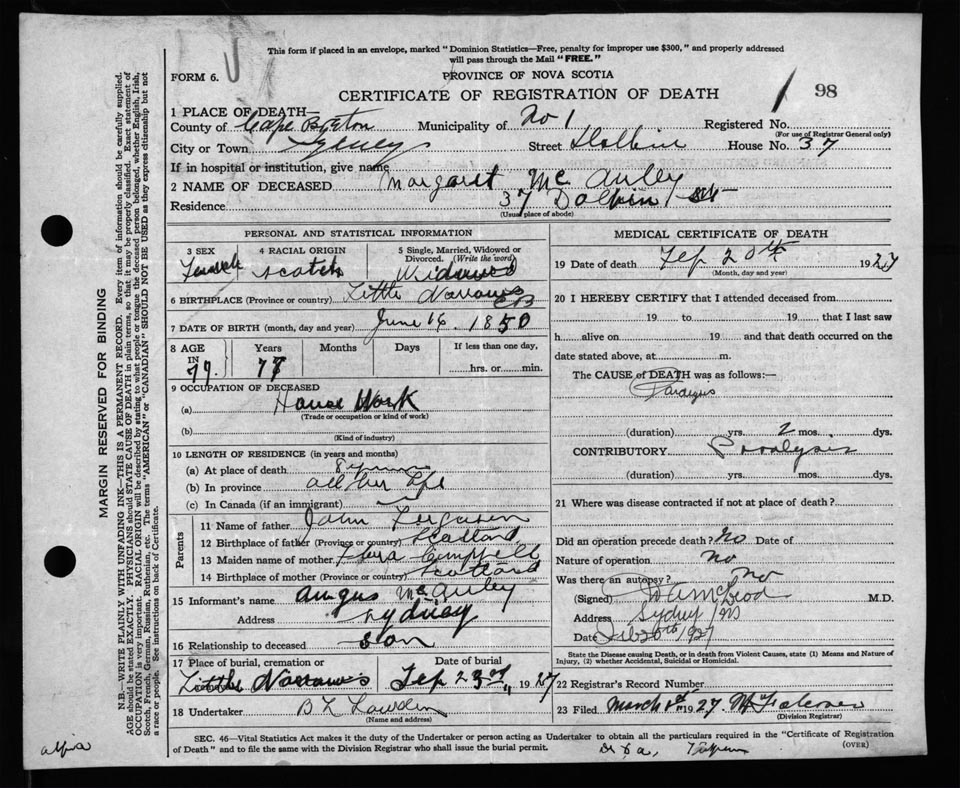 This form if placed in an envelope, marked "Dominion Statistics—Free, penalty for improper use $300," and properly addressed
will pass through the Mail "FREE."
FORM 6.
PROVINCE OF NOVA SCOTIA
CERTIFICATE OF REGISTRATION OF DEATH
1 98
1 PLACE OF DEATH—
County of Cape Breton Municipality of No 1 Registered No.
(For use of Registrar General only)
City or Town Sydney Street House No. 37
If in hospital or institution, give name
2 NAME OF DECEASED Margaret Mc Auley
Residence 37 Dolbin St
(Usual place of abode)
PERSONAL AND STATISTICAL INFORMATION
3 SEX 4 RACIAL ORIGIN 5 Single, Married, Widowed or
Divorced. (Write the word)
Female Scotch Widowed
6 BIRTHPLACE (Province or country) Little Narrows
CB
7 DATE OF BIRTH (month, day and year) June 16. 1850
8 AGE Years Months Days If less than one day,
IN
77. 77 hrs. or min.
9 OCCUPATION OF DECEASED
(a) House Work
(Trade or occupation or kind of work)
(b)
(Kind of industry)
10 LENGTH OF RESIDENCE (in years and months)
(a) At place of death 8 years
(b) In province all her life
(c) In Canada (if an immigrant)
Parents
11 Name of father John Ferguson
12 Birthplace of father (Province or country) Scotland
13 Maiden name of mother Flora Campbell
14 Birthplace of mother (Province or country) Scotland
15 Informant's name Angus McAuley
Address Sydney
16 Relationship to deceased Son
17 Place of burial, cremation or Date of burial
Little Narrows Feb 23rd 1927
18 Undertaker
(Name and address)
MEDICAL CERTIFICATE OF DEATH
19 Date of death Feb 20th 1927
(Month, day and year)
20 I HEREBY CERTIFY that I attended deceased from
19 to 19 , that I last saw
h alive on 19 and that death occurred on the
date stated above, at m.
The CAUSE of DEATH was as follows:—
(duration) yrs. 2 mos. dys.
CONTRIBUTORY Paralysis
(duration) yrs. mos. dys.
21 Where was disease contracted if not at place of death?
Did an operation precede death? No Date of
Nature of operation No
Was there an autopsy? No
(Signed) McLeod M.D.
Address Sydney
Date Feb 26th 1927
State the Disease causing Death, or in death from Violent Causes, state (1) Means and Nature of
Injury, (2) whether Accidental, Suicidal or Homicidal.
22 Registrar's Record Number
23 Filed March 1927
(Division Registrar)
SEC. 46—Vital Statistics Act makes it the duty of the Undertaker or person acting as Undertaker to obtain all the particulars required in the "Certificate of Registration
of Death" and to file the same with the Division Registrar who shall issue the burial permit.
(OVER)
MARGIN RESERVED FOR BINDING
N.B.—WRITE PLAINLY WITH UNFADING INK—THIS IS A PERMANENT RECORD. Every item of information should be carefully supplied.
AGE should be stated EXACTLY. PHYSICIANS should STATE CAUSE OF DEATH in plain terms, so that it may be properly classified. Exact statement of
OCCUPATION is very important. RACIAL ORIGIN will be described by stating to what people or tongue the deceased person belonged, whether English, Irish,
Scotch, French, German, Russian, Ruthenian, etc. The terms "AMERICAN" or "CANADIAN" SHOULD NOT BE USED as they express citizenship but not
a race or people. See instructions on back of Certificate.